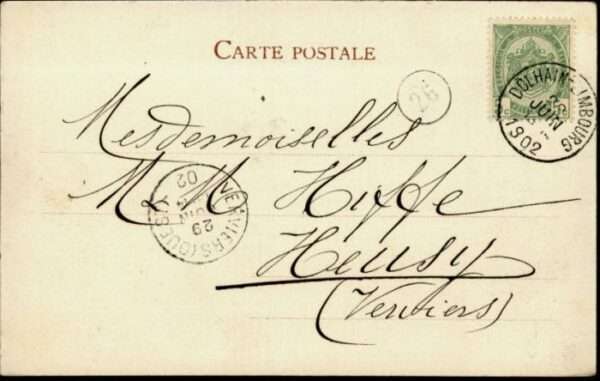 CARTE POSTALE
26
DOLHAIN-LIMBOURG
JUIN
1902
Mesdemoiselles
M & M Hiffe
VERVIERS (OUEST)
29
JUIN
02
Heusy
(Verviers)